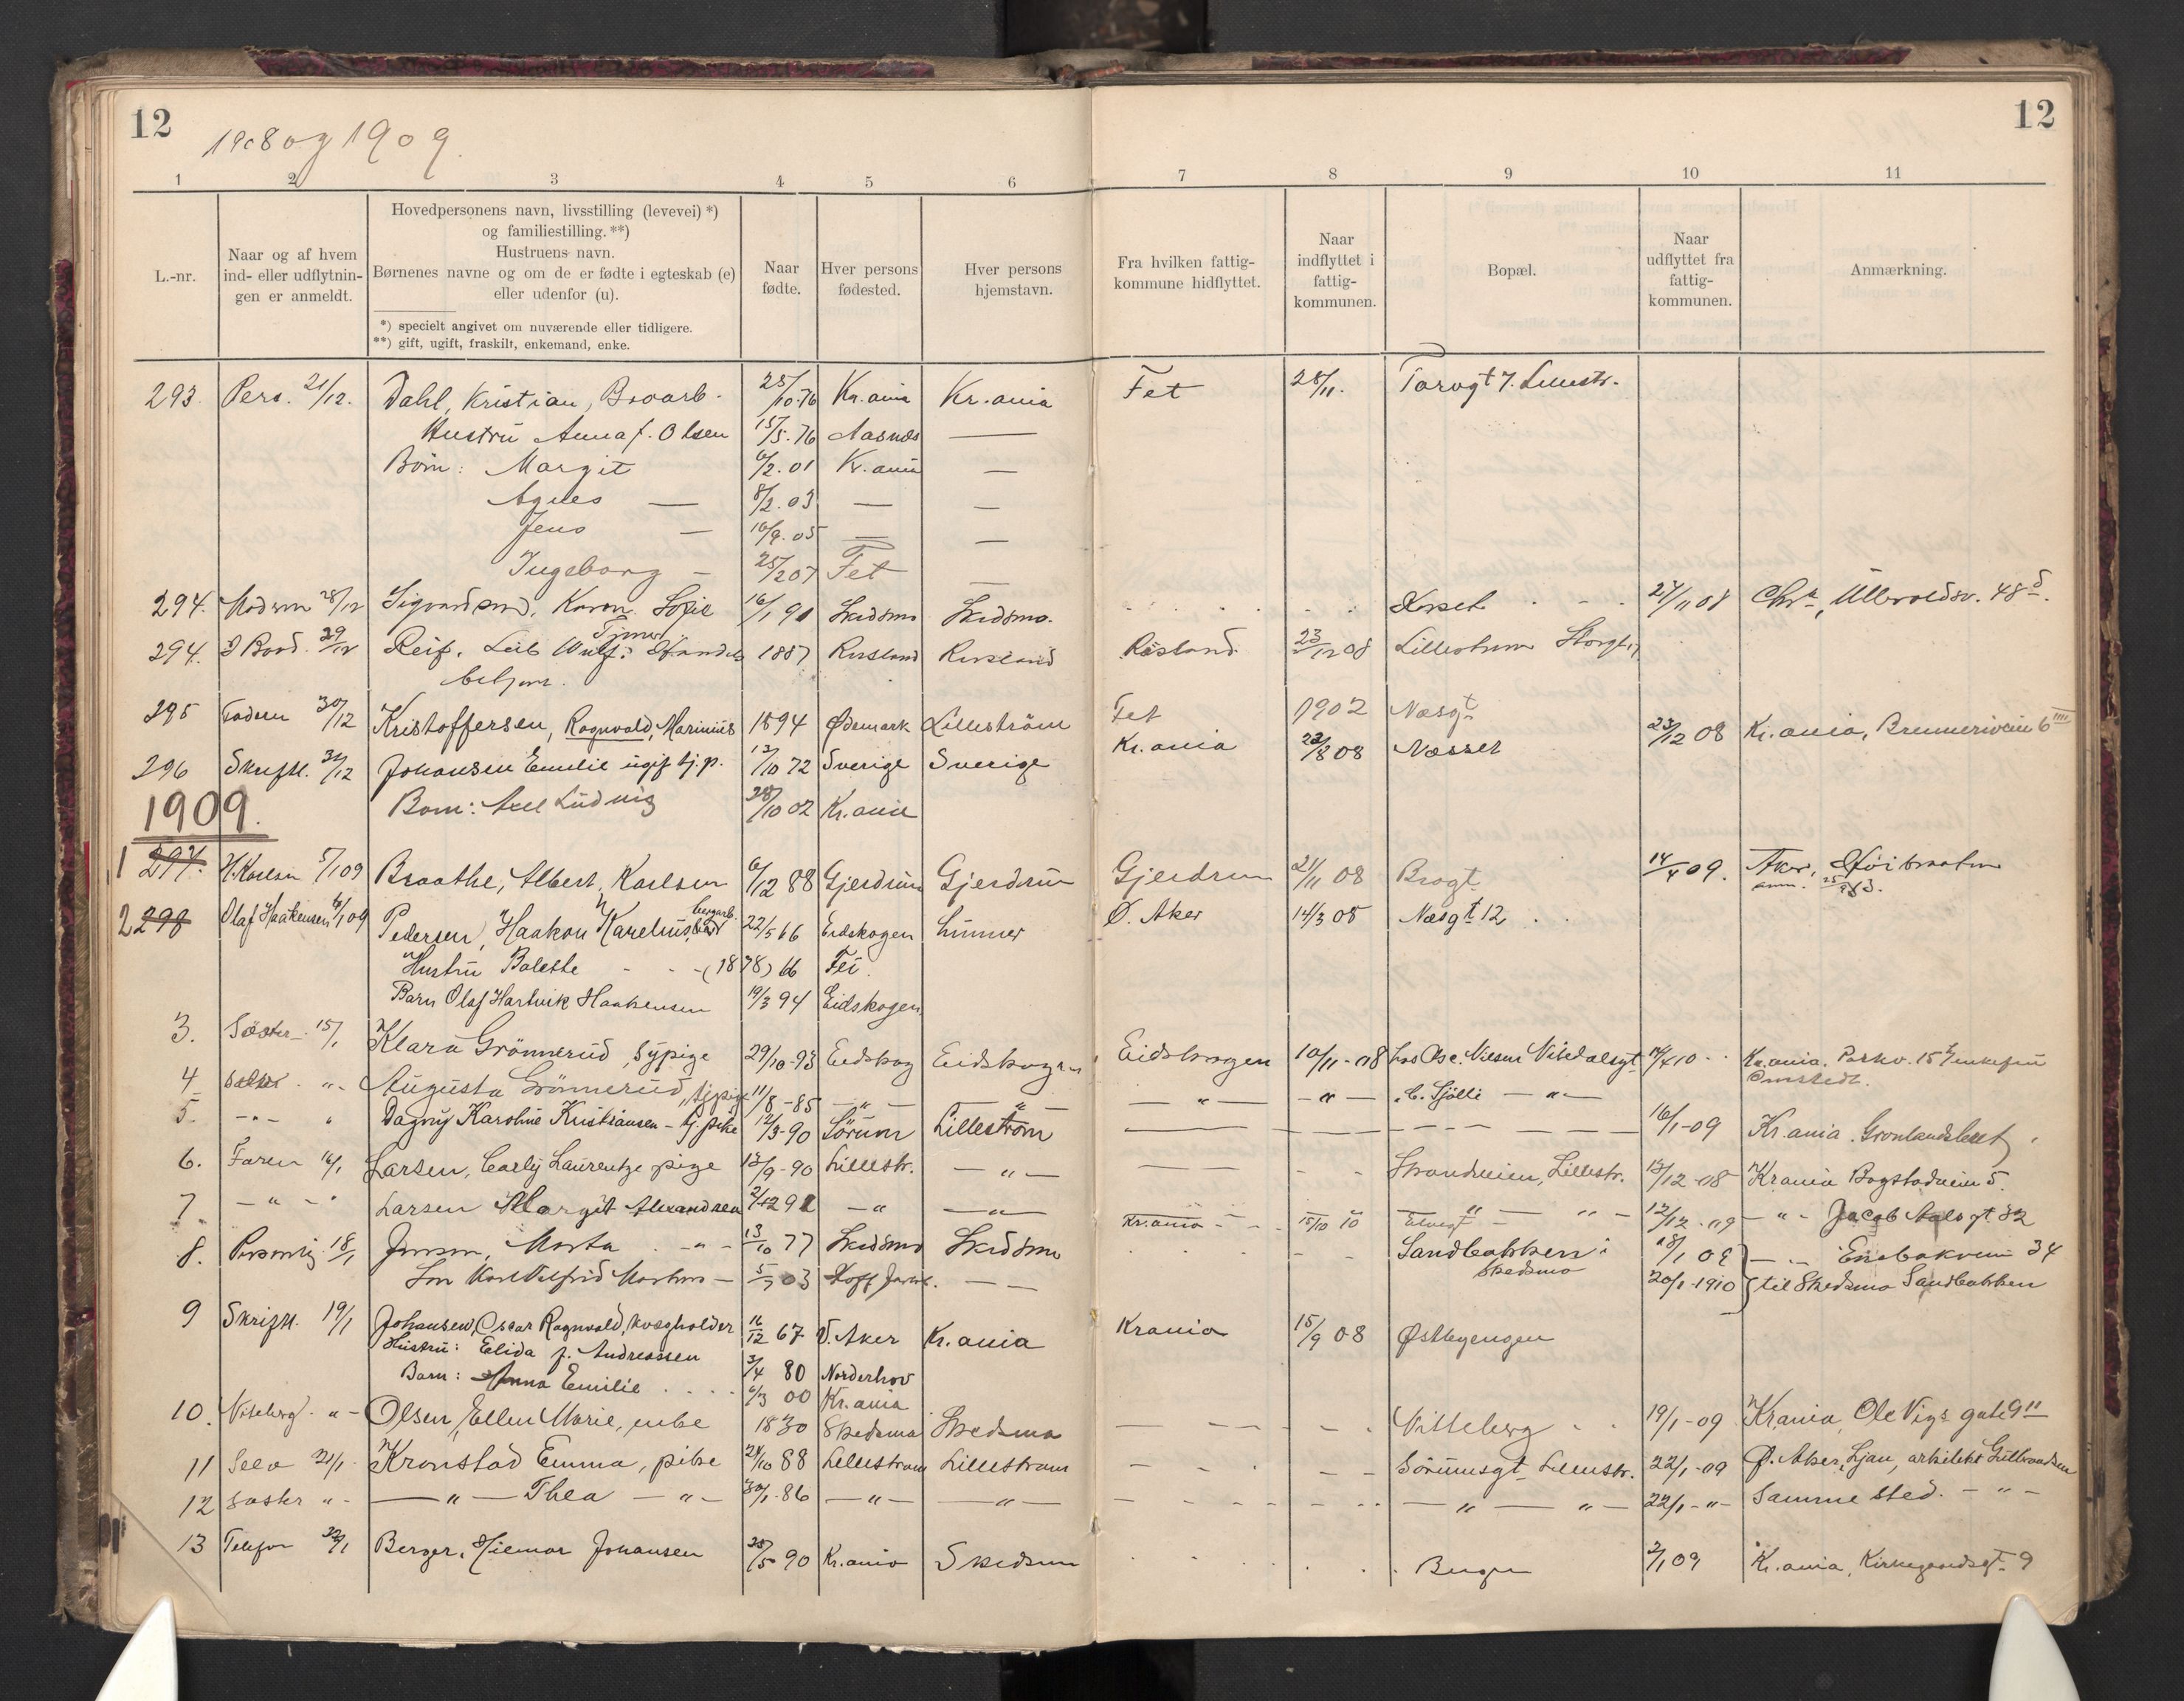 12
1908 og 1909.
12
1 2 3 4 5 6 7 8 9 10 11
L.-nr.
Naar og af hvem
ind- eller udflytnin-
gen er anmeldt.
Hovedpersonens navn, livsstilling (levevei) *)
og familiestilling. **)
Hustruens navn.
Børnenes navne og om de er fødte i egteskab (e)
eller udenfor (u).
*) specielt angivet om nuværende eller tidligere.
**) gift, ugift, fraskilt, enkemand, enke.
Naar
fødte.
Hver persons
fødested.
Hver persons
hjemstavn.
Fra hvilken fattig-
kommune hidflyttet.
Naar
indflyttet i
fattig-
kommunen.
Bopæl.
Naar
udflyttet fra
fattig-
kommunen.
Anmærkning.
293. Pers. 21/12. Dahl, Kristian, 25/10.76 Kr.ania Kr.ania Fet 28/11. Torvgt 7. Lillestr.
Hustru Anna f. Olsen 15/5.76 Aasnes —
Børn: Margit 6/2.01 Kr.ania —
Agnes — 8/2.03 — —
Jens — 16/9.05 — —
Ingeborg — 25/2 07 Fet —
294. Moderen 28/12 Karen Sofie 16/1 91 Skedsmo Skedsmo. 27/11 08 Ullevoldsv. 48
294. 29/12 Reif, Leib Wulf, 1887 Rusland Rusland Rusland 23/12 08 Lillestrøm Storgt
betjent.
295 Faderen 30/12 Kristoffersen, Ragnvald, Marinius 1894 Ødemark Lillestrøm Fet 1902 Næsgt 23/12 08 Kr.ania, Brenneriveien 6
296 Skriftl. 31/12 Johansen Emilie ugif tj.p. 12/10 72 Sverige Sverige Kr.ania 22/8 08 Næsset
1909.
Barn: Axel Ludvig 28/10 02 Kr.ania
1 297. H. Karlsen 5/1 09 Braathe, Albert, Karlsen 6/12 88 Gjerdrum Gjerdrum Gjerdrum 21/11 08 Brogt 14/4 09. Aker,
2 298 Olaf Haakensen 6/1 09 Pedersen, Haakon Karelius, 22/5 66 Eidskogen Lunner Ø. Aker 14/3 08 Næsgt 12
Hustru Balette - - - (1878) 66 Fet.
Barn Olaf Hartvik Haakensen 19/3 94 Eidskogen
3. Søster 15/1 Klara Grønnerud, sypige 29/10-93 Eidskog Eidskogen Eidskogen 10/11-08 hos Nilsen 14/4 10 Kr.ania. Parkv. 15
4 " Augusta Grønnerud, tjpige 11/8-85 — " — — " — — " — — " — — " —
5. - " - " Dagny Karoline Kristiansen - tj.pike 12/3-90 Sørum Lillestrøm — 16/1-09 Kr.ania. Grønlandsleret
6. Faren 16/1 Larsen, Carly Laurentze pige 13/9-90 Lillestr. — " — Strandveien, Lillestr. 13/12-08 Krania Bogstadveien 5.
7. — " — Larsen Margit Alexandrea 2/12 91 — " — " Kr.ania 15/10 10 — " — 12/12-09 — " — Jacob Aalsgt 32
8. Personlig 18/1 Jensen, Marta - " - 13/10 77 Skedsmo Skedsmo Sandbakken i 18/1 09 — Enebakveien 34
Skedsmo
Søn Karl Valfrid 5/7 03 — 20/1-1910 } til Skedsmo Sandbakken
9 Skriftl. 19/1 Johansen, Oscar Ragnvald, 16/12 67 V. Aker Kr.ania Krania 15/9 08 Østbyengen
Hustru: Elida f. Andreassen 3/4 80 Norderhov
Barn: Anna Emilie 6/3 00 Kr.ania
10. Viteberg - " - Olsen, Ellen Marie, enke 1830 Skedsmo Skedsmo Vitteberg 19/1-09 Krania, Ole Vigs gate 9
11 Selv 21/1 Kronstad Emma, pike 24/10 88 Lillestrøm Lillestrøm Sørumsgt Lillestr. 22/1-09 Ø. Aker, Ljan, arkitekt
12 Søster " - — " — Thea — " — 30/1-86 — " — — " — — " — " — 22/1-"- Samme sted. - " -
13 Telefon 22/1 Berger, Hilmar Johansen 28/5 90 Kr.ania Skedsmo Berger 2/1 09 Kr.ania, Kirkegaardsgt 9